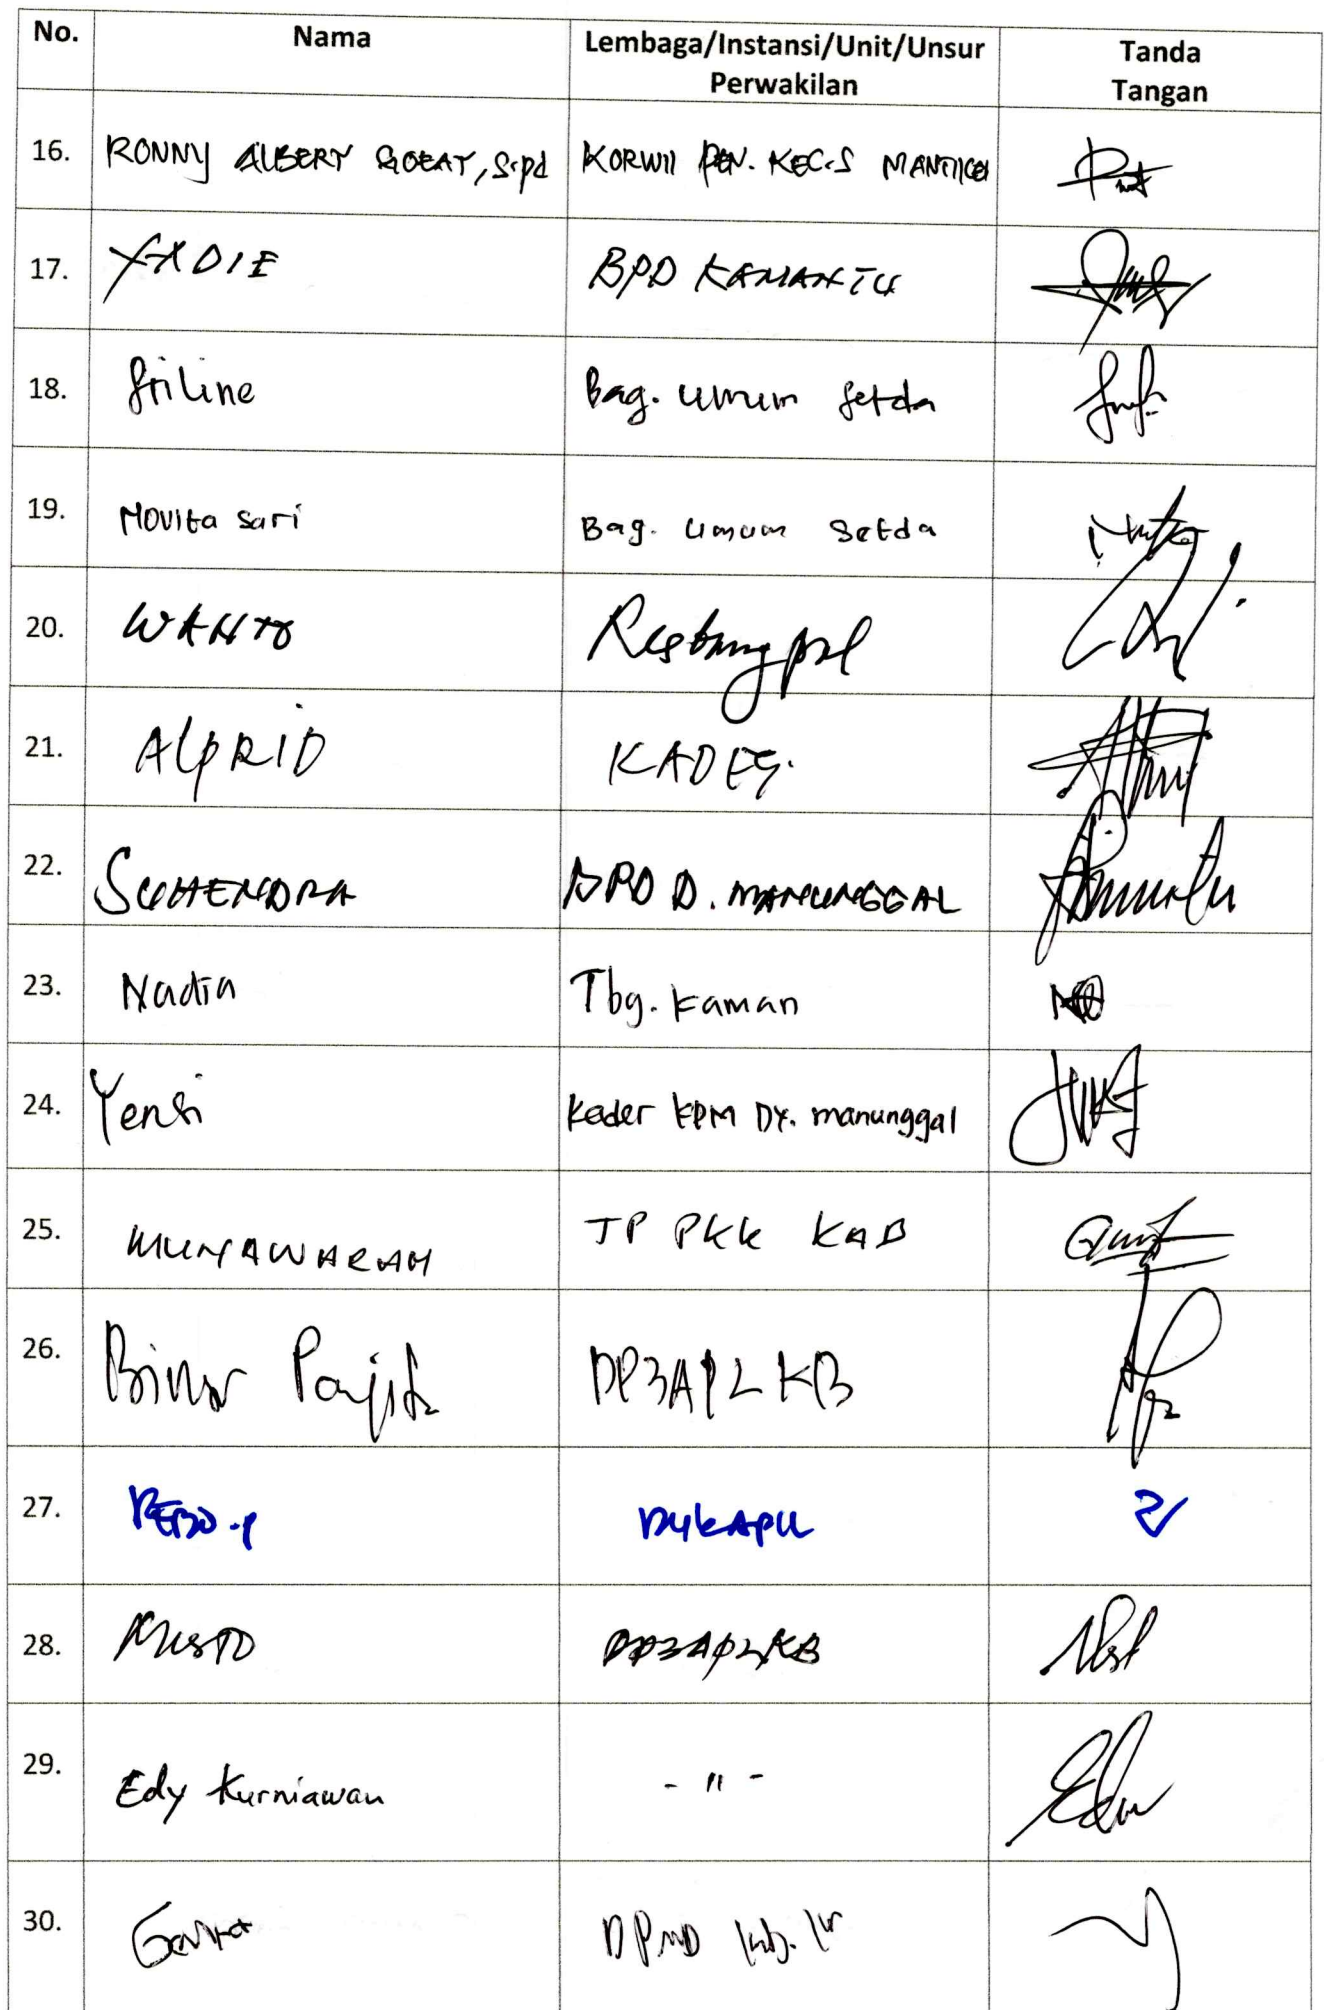 No. Nama Lembaga/Instansi/Unit/Unsur Perwakilan Tanda Tangan
16. RONNY ALBERT, S.pd KORWIL PEN. KEC.S
17. BPD KAMANTU
18. Bag. umum Setda
19. Novita Sari Bag. Umum Setda
20. WANTO
21. ALPRID KADES.
22. SUHENDRA BPD D. MANUNGGAL
23. Nadia Tbg. Kaman
24. Yensi Kader KPM Dx. manunggal
25. MUNAWARAH TP PKK KAB
26. DP3AP2KB
27.
28. DP3AP2KB
29. Edy Kurniawan - " -
30. DPMD